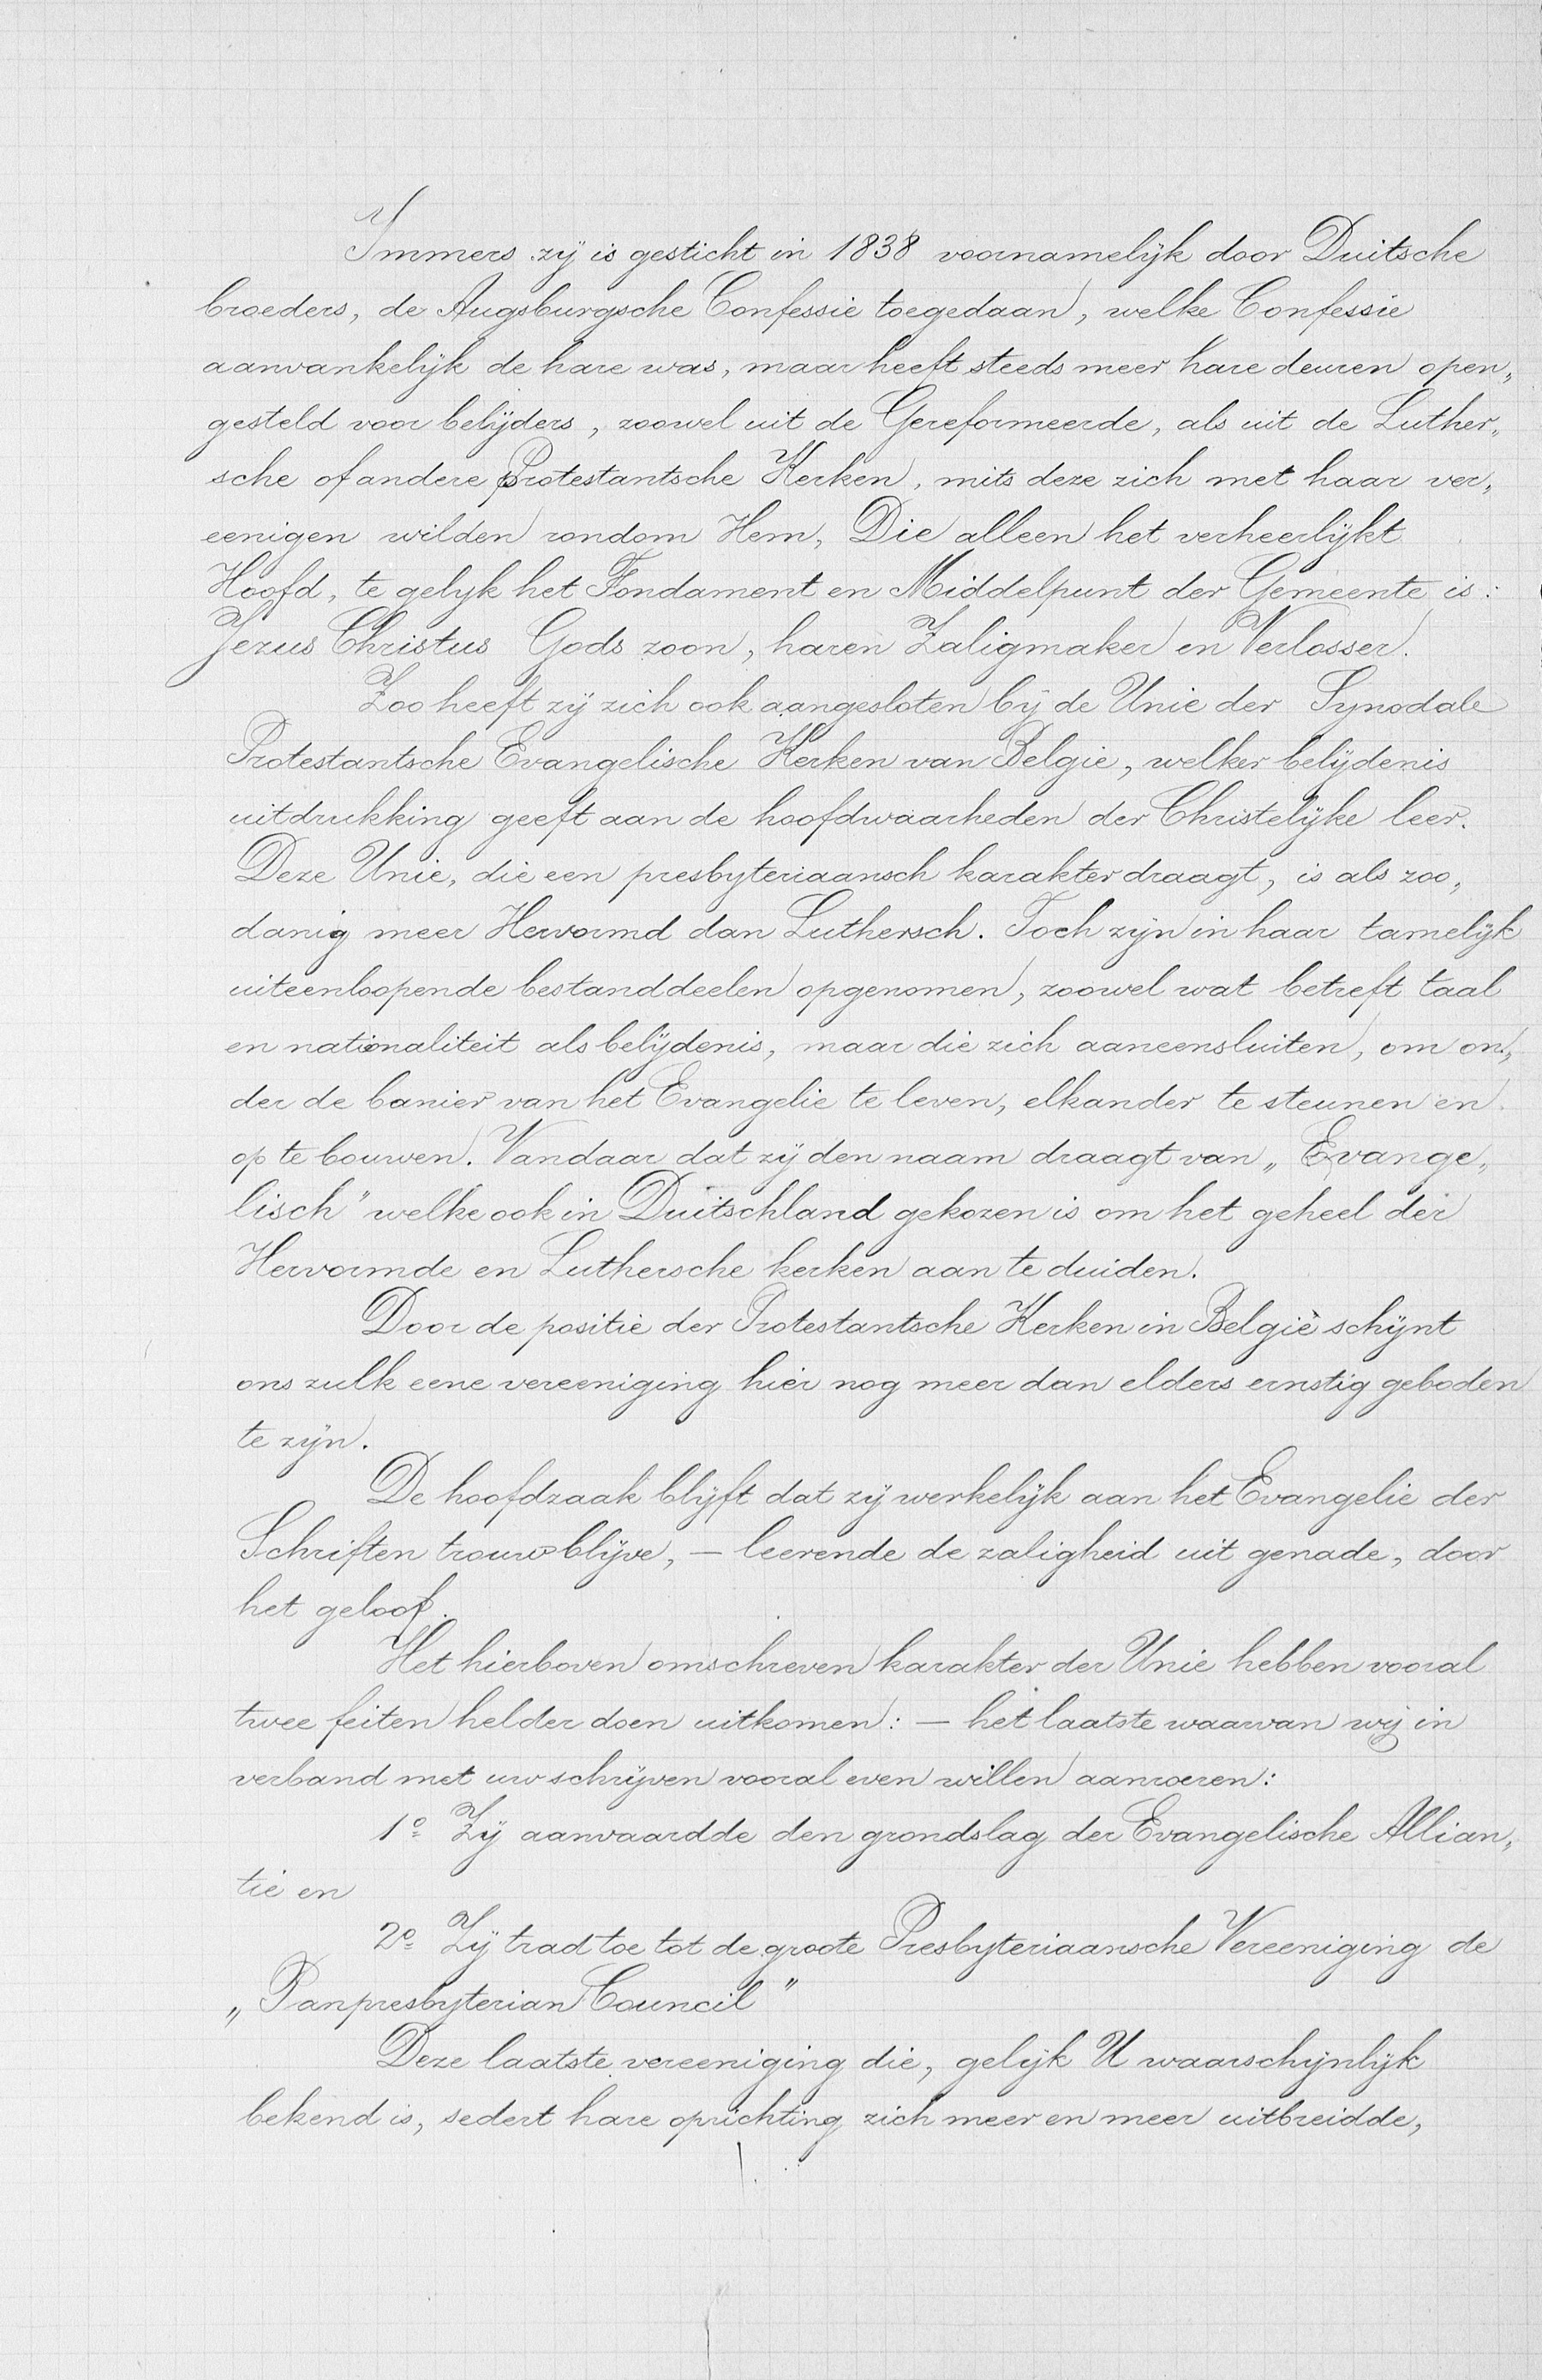 Immers zij is gesticht in 1838 voornamelijk door Duitsche
broeders, de Augsburgsche Confessie toegedaan, welke Confessie
aanvankelijk de hare was, maar heeft steeds meer hare deuren open„
gesteld voor belijders, zoowel uit de Gereformeerde, als uit de Luther„
sche of andere Protestantsche Kerken, mits deze zich met haar ver„
eenigen wilden rondom Hem, Die alleen het verheerlijkt
Hoofd, te gelijk het Fondament en Middelpunt der Gemeente is:
Jezus Christus Gods zoon, haren Zaligmaker en Verlosser.
Zoo heeft zij zich ook aangesloten bij de Unie der Synodale
Protestantsche Evangelische Kerken van Belgie, welker belijdenis
uitdrukking geeft aan de hoofdwaarheden der Christelijke leer.
Deze Unie, die een presbyteriaansch karakter draagt, is als zoo„
danig meer Hervormd dan Luthersch. Toch zijn in haar tamelijk
uiteenloopende bestanddeelen opgenomen, zoowel wat betreft taal
en nationaliteit als belijdenis, maar die zich aaneensluiten, om on„
der de banier van het Evangelie te leven, elkander te steunen en
op te bouwen. Vandaar dat zij den naam draagt van „Evange„
lisch" welke ook in Duitschland gekozen is om het geheel der
Hervormde en Luthersche kerken aan te duiden.
Door de positie der Protestantsche Kerken in België schijnt
ons zulk eene vereeniging hier nog meer dan elders ernstig geboden
te zijn.
De hoofdzaak blijft dat zij werkelijk aan het Evangelie der
Schriften trouw blijve, — leerende de zaligheid uit genade, door
het geloof.
Het hierboven omschreven karakter der Unie hebben vooral
twee feiten helder doen uitkomen: — het laatste waarvan wij in
verband met uw schrijven vooral even willen aanroeren:
1º Zij aanvaardde den grondslag der Evangelische Allian„
tie en
2º Zij trad toe tot de groote Presbyteriaansche Vereeniging de
„Panpresbyterian Council"
Deze laatste vereeniging die, gelijk U waarschijnlijk
bekend is, sedert hare oprichting zich meer en meer uitbreidde,